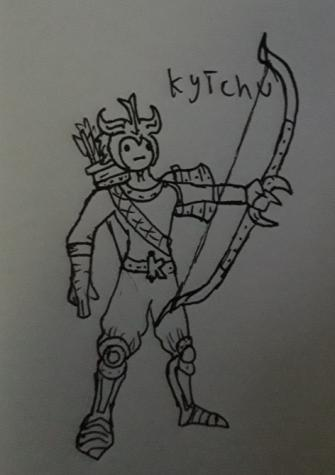 kyTchu
K